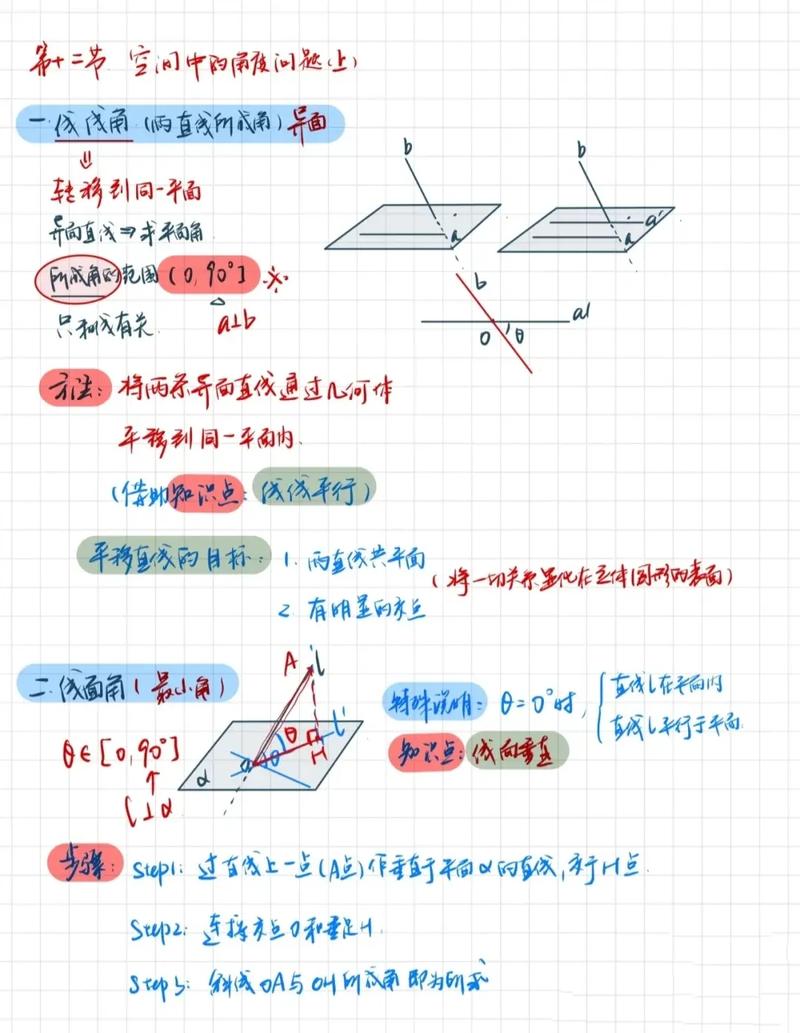 第十二节 空间中的角度问题(上)
一.线线角(两直线所成角)异面
⇓
转移到同一平面
异面直线⇒求平面角
所成角的范围(0,90°] ※
只和线有关. a⊥b
b
a
b
a'
a
b
a'
O θ
方法: 将两条异面直线通过几何体
平移到同一平面内.
(借助知识点:线线平行)
平移直线的目标: 1. 两直线共平面
2. 有明显的交点
(将一切关系显化在立体图形的表面)
二.线面角(最小角)
θ∈[0,90°]
↑
l⊥α
A l
θ
l'
H
O θ
α
特殊说明: θ=0°时, { 直线l在平面内
直线l平行于平面.
知识点:线面垂直
步骤: Step1: 过直线上一点(A点)作垂直于平面α的直线,交于H点.
Step2: 连接交点O和垂足H.
Step3: 斜线OA与OH所成角即为所求